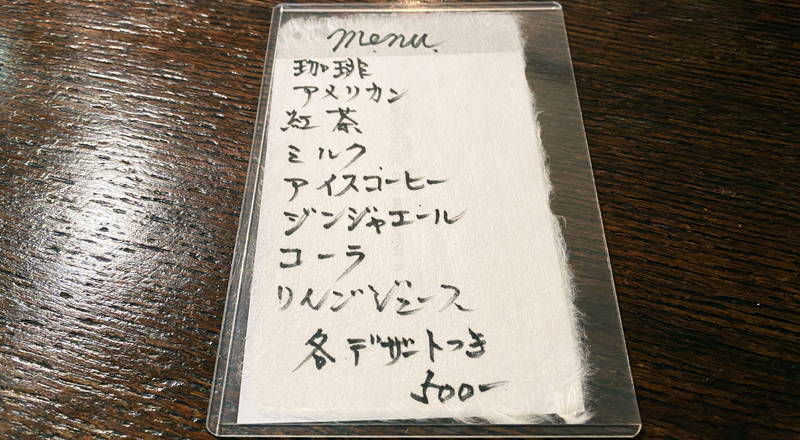 menu
珈琲
アメリカン
紅茶
ミルク
アイスコーヒー
ジンジャエール
コーラ
りんごジュース
各デザートつき
500-